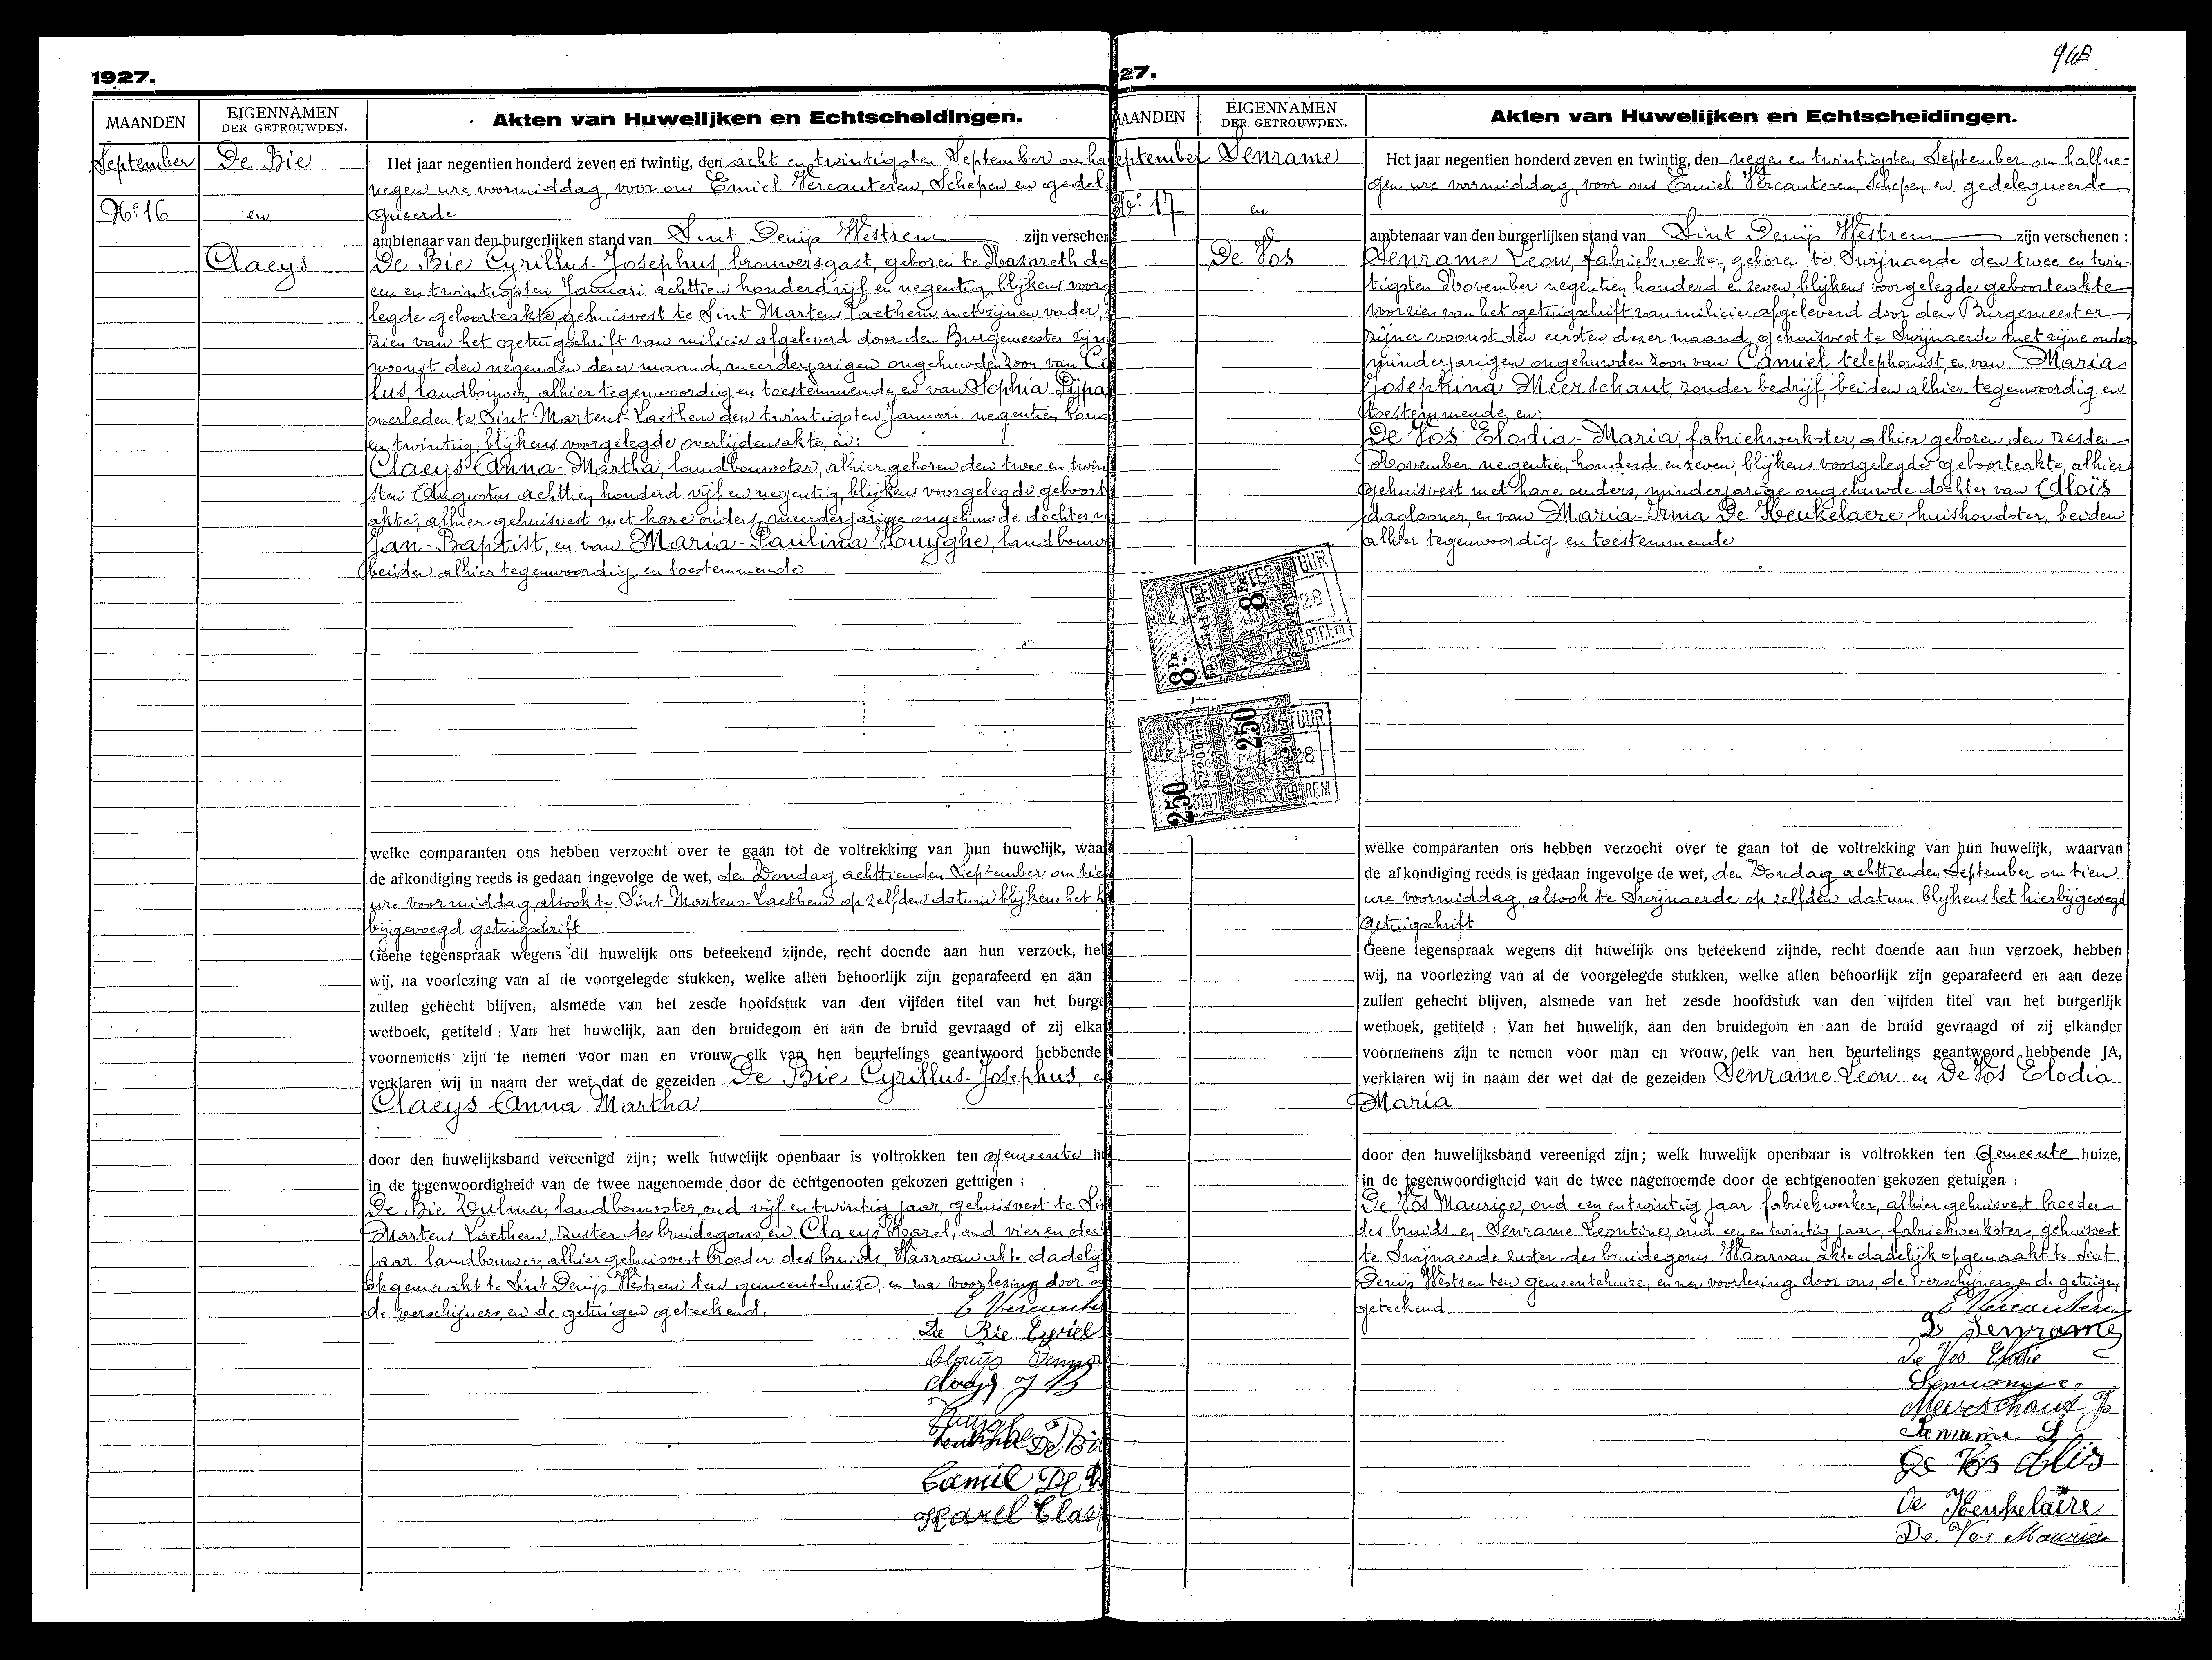 1927.
MAANDEN
EIGENNAMEN
DER GETROUWDEN.
Akten van Huwelijken en Echtscheidingen.
September
De Bie
No: 16
en
Claeys
Het jaar negentien honderd zeven en twintig, den acht en twintigsten September om ha
negen ure voormiddag, voor ons Emiel Vercauteren, Schepen en gedel
gueerde
ambtenaar van den burgerlijken stand van Sint Denijs Westrem zijn verschen
De Bie Cyrillus-Josephus, brouwersgast, geboren te Nazareth de
een en twintigsten Januari achttien honderd vijf en negentig, blijkens voorg
legde geboorteakte, gehuisvest te Sint Martens Laethem met zijnen vader,
zien van het getuigschrift van milicie afgeleverd door den Burgemeester zijn
woonst den negenden dezer maand, meerderjarigen ongehuwden zoon van Ca
lus, landbouwer, alhier tegenwoordig en toestemmende, en van Sophia Pijpa
overleden te Sint Martens-Laethem den twintigsten Januari negentien hond
en twintig, blijkens voorgelegde overlijdensakte, en:
Claeys Anna-Martha, landbouwster, alhier geboren den twee en twin
sten Augustus achttien honderd vijf en negentig, blijkens voorgelegde geboort
akte, alhier gehuisvest met hare ouders, meerderjarige ongehuwde dochter v
Jan-Baptist, en van Maria-Paulina Huyghe, landbouw
beiden alhier tegenwoordig en toestemmende
welke comparanten ons hebben verzocht over te gaan tot de voltrekking van hun huwelijk, waa
de afkondiging reeds is gedaan ingevolge de wet, den Zondag achttienden September om tie
ure voormiddag, alsook te Sint Martens-Laethem op zelfden datum blijkens het h
bijgevoegd getuigschrift
Geene tegenspraak wegens dit huwelijk ons beteekend zijnde, recht doende aan hun verzoek, heb
wij, na voorlezing van al de voorgelegde stukken, welke allen behoorlijk zijn geparafeerd en aan
zullen gehecht blijven, alsmede van het zesde hoofdstuk van den vijfden titel van het burge
wetboek, getiteld : Van het huwelijk, aan den bruidegom en aan de bruid gevraagd of zij elka
voornemens zijn te nemen voor man en vrouw, elk van hen beurtelings geantwoord hebbende
verklaren wij in naam der wet dat de gezeiden De Bie Cyrillus-Josephus, e
Claeys Anna Martha
door den huwelijksband vereenigd zijn; welk huwelijk openbaar is voltrokken ten gemeente hu
in de tegenwoordigheid van de twee nagenoemde door de echtgenooten gekozen getuigen :
De Bie Zulma, landbouwster, oud vijf en twintig jaar, gehuisvest te Si
Martens Laethem, zuster des bruidegoms, en Claeys Karel, oud vier en der
jaar, landbouwer, alhier gehuisvest broeder des bruids. Waarvan akte dadelij
opgemaakt te Sint Denijs Westrem ten gemeentehuize, en na voorlezing door o
de verschijners, en de getuigen geteekend.
De Bie Cyriel
Claeys J B
Huyghe
De Bie
Camil De B
Karel Claey
27.
94B
MAANDEN
EIGENNAMEN
DER GETROUWDEN.
Akten van Huwelijken en Echtscheidingen.
September
Senrame
No: 17
en
De Vos
Het jaar negentien honderd zeven en twintig, den negen en twintigsten September om halfne-
gen ure voormiddag, voor ons Emiel Vercauteren, Schepen en gedelegueerde
ambtenaar van den burgerlijken stand van Sint Denijs Westrem zijn verschenen :
Senrame Leon, fabriekwerker, geboren te Swijnaerde den twee en twin-
tigsten November negentien honderd en zeven, blijkens voorgelegde geboorteakte
voorzien van het getuigschrift van milicie afgeleverd door den Burgemeester
zijner woonst den eersten dezer maand, gehuisvest te Swijnaerde met zijne ouders
minderjarigen ongehuwden zoon van Camiel, telephonist, en van Maria
Josephina Meerschaut, zonder bedrijf, beiden alhier tegenwoordig en
toestemmende, en:
De Vos Elodia-Maria, fabriekwerkster, alhier geboren den zesden
November negentien honderd en zeven, blijkens voorgelegde geboorteakte, alhier
gehuisvest met hare ouders, minderjarige ongehuwde dochter van Aloïs
daglooner, en van Maria-Irma De Keukelaere, huishoudster, beiden
alhier tegenwoordig en toestemmende
GEMEENTEBESTUUR
8 FR
8 FR
28
250
250
SINT DENYS WESTREM
welke comparanten ons hebben verzocht over te gaan tot de voltrekking van hun huwelijk, waarvan
de afkondiging reeds is gedaan ingevolge de wet, den Zondag achttienden September om tien
ure voormiddag, alsook te Swijnaerde op zelfden datum blijkens het hierbijgevoegd
getuigschrift
Geene tegenspraak wegens dit huwelijk ons beteekend zijnde, recht doende aan hun verzoek, hebben
wij, na voorlezing van al de voorgelegde stukken, welke allen behoorlijk zijn geparafeerd en aan deze
zullen gehecht blijven, alsmede van het zesde hoofdstuk van den vijfden titel van het burgerlijk
wetboek, getiteld : Van het huwelijk, aan den bruidegom en aan de bruid gevraagd of zij elkander
voornemens zijn te nemen voor man en vrouw, elk van hen beurtelings geantwoord hebbende JA,
verklaren wij in naam der wet dat de gezeiden Senrame Leon en De Vos Elodia
Maria
door den huwelijksband vereenigd zijn; welk huwelijk openbaar is voltrokken ten Gemeente huize,
in de tegenwoordigheid van de twee nagenoemde door de echtgenooten gekozen getuigen :
De Vos Maurice, oud een en twintig jaar fabriekwerker, alhier gehuisvest broeder
des bruids en Senrame Leontine, oud een en twintig jaar, fabriekwerkster, gehuisvest
te Swijnaerde zuster des bruidegoms. Waarvan akte dadelijk opgemaakt te Sint
Denijs Westrem ten gemeentehuize, en na voorlezing door ons, de verschijners, en de getuigen
geteekend.
E Vercauteren
L Senrame
De Vos Elodie
Meerschaut Jo
Senrame L
De Vos Aloïs
De Keukelaire
De Vos Maurice